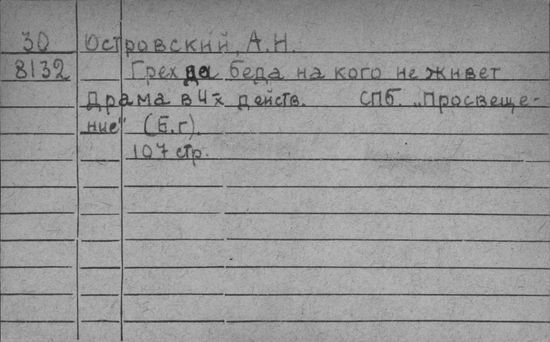 30 Островский, А.Н.
8132 Грех да беда на кого не живет
Драма в 4х действ. СПб. „Просвеще-
ние" (Б.г).
107 стр.